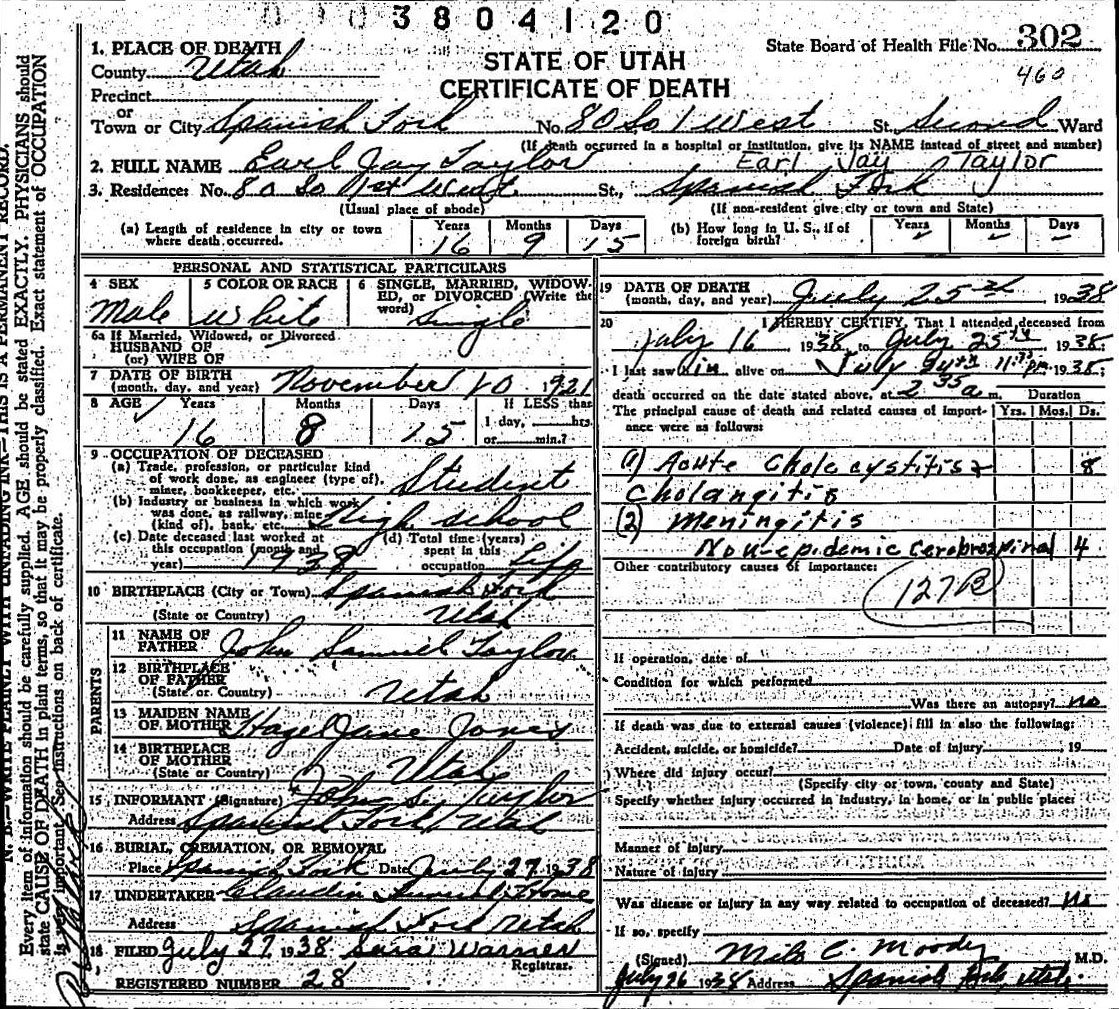 3804120
State Board of Health File No. 302
460
STATE OF UTAH
CERTIFICATE OF DEATH
1. PLACE OF DEATH
County Utah
Precinct
or
Town or City Spanish Fork No. 80 So 1 West St. Second Ward
(If death occurred in a hospital or institution, give its NAME instead of street and number)
2. FULL NAME Earl Jay Taylor Earl Jay Taylor
3. Residence: No. 80 So 1st West St., Spanish Fork
(Usual place of abode) (If non-resident give city or town and State)
(a) Length of residence in city or town where death occurred. Years 16 Months 9 Days 15
(b) How long in U. S., if of foreign birth? Years Months Days
PERSONAL AND STATISTICAL PARTICULARS
4 SEX Male
5 COLOR OR RACE White
6 SINGLE, MARRIED, WIDOWED, or DIVORCED (Write the word) Single
6a If Married, Widowed, or Divorced
HUSBAND OF
(or) WIFE OF
7 DATE OF BIRTH
(month, day, and year) November 10 1921
8 AGE Years 16 Months 8 Days 15 If LESS than 1 day, hrs. or min.?
9 OCCUPATION OF DECEASED
(a) Trade, profession, or particular kind of work done, as engineer (type of), miner, bookkeeper, etc. Student
(b) Industry or business in which work was done, as railway, mine (kind of), bank, etc. High school
(c) Date deceased last worked at this occupation (month and year) 1938
(d) Total time (years) spent in this occupation Life
10 BIRTHPLACE (City or Town) Spanish Fork
(State or Country) Utah
PARENTS
11 NAME OF FATHER John Samuel Taylor
12 BIRTHPLACE OF FATHER
(State or Country) Utah
13 MAIDEN NAME OF MOTHER Hazel Jane Jones
14 BIRTHPLACE OF MOTHER
(State or Country) Utah
15 INFORMANT (Signature) John S. Taylor
Address Spanish Fork Utah
16 BURIAL, CREMATION, OR REMOVAL
Place Spanish Fork Date July 27 1938
17 UNDERTAKER Claudin Funeral Home
Address Spanish Fork Utah
18 FILED July 27 1938 Sara Warner
Registrar.
REGISTERED NUMBER 28
19 DATE OF DEATH
(month, day, and year) July 25th 1938
20 I HEREBY CERTIFY, That I attended deceased from
July 16 1938, to July 25th, 1938;
I last saw him alive on July 24th 11:35 pm 1938;
death occurred on the date stated above, at 2 35 a m. Duration
The principal cause of death and related causes of importance were as follows: Yrs. Mos. Ds.
(1) Acute Cholocystitis & 8
Cholangitis
(2) Meningitis
Non-epidemic Cerebrospinal 4
Other contributory causes of importance:
127B
If operation, date of
Condition for which performed
Was there an autopsy? no
If death was due to external causes (violence) fill in also the following:
Accident, suicide, or homicide? Date of injury 19
Where did injury occur?
(Specify city or town, county and State)
Specify whether injury occurred in industry, in home, or in public place:
Manner of injury
Nature of injury
Was disease or injury in any way related to occupation of deceased? No
If so, specify
(Signed) Milo C. Moody M.D.
July 26 1938 Address Spanish Fork, Utah.
N. B.—WRITE PLAINLY WITH UNFADING INK—THIS IS A PERMANENT RECORD.
Every item of information should be carefully supplied. AGE should be stated EXACTLY. PHYSICIANS should
state CAUSE OF DEATH in plain terms, so that it may be properly classified. Exact statement of OCCUPATION
is very important. See instructions on back of certificate.